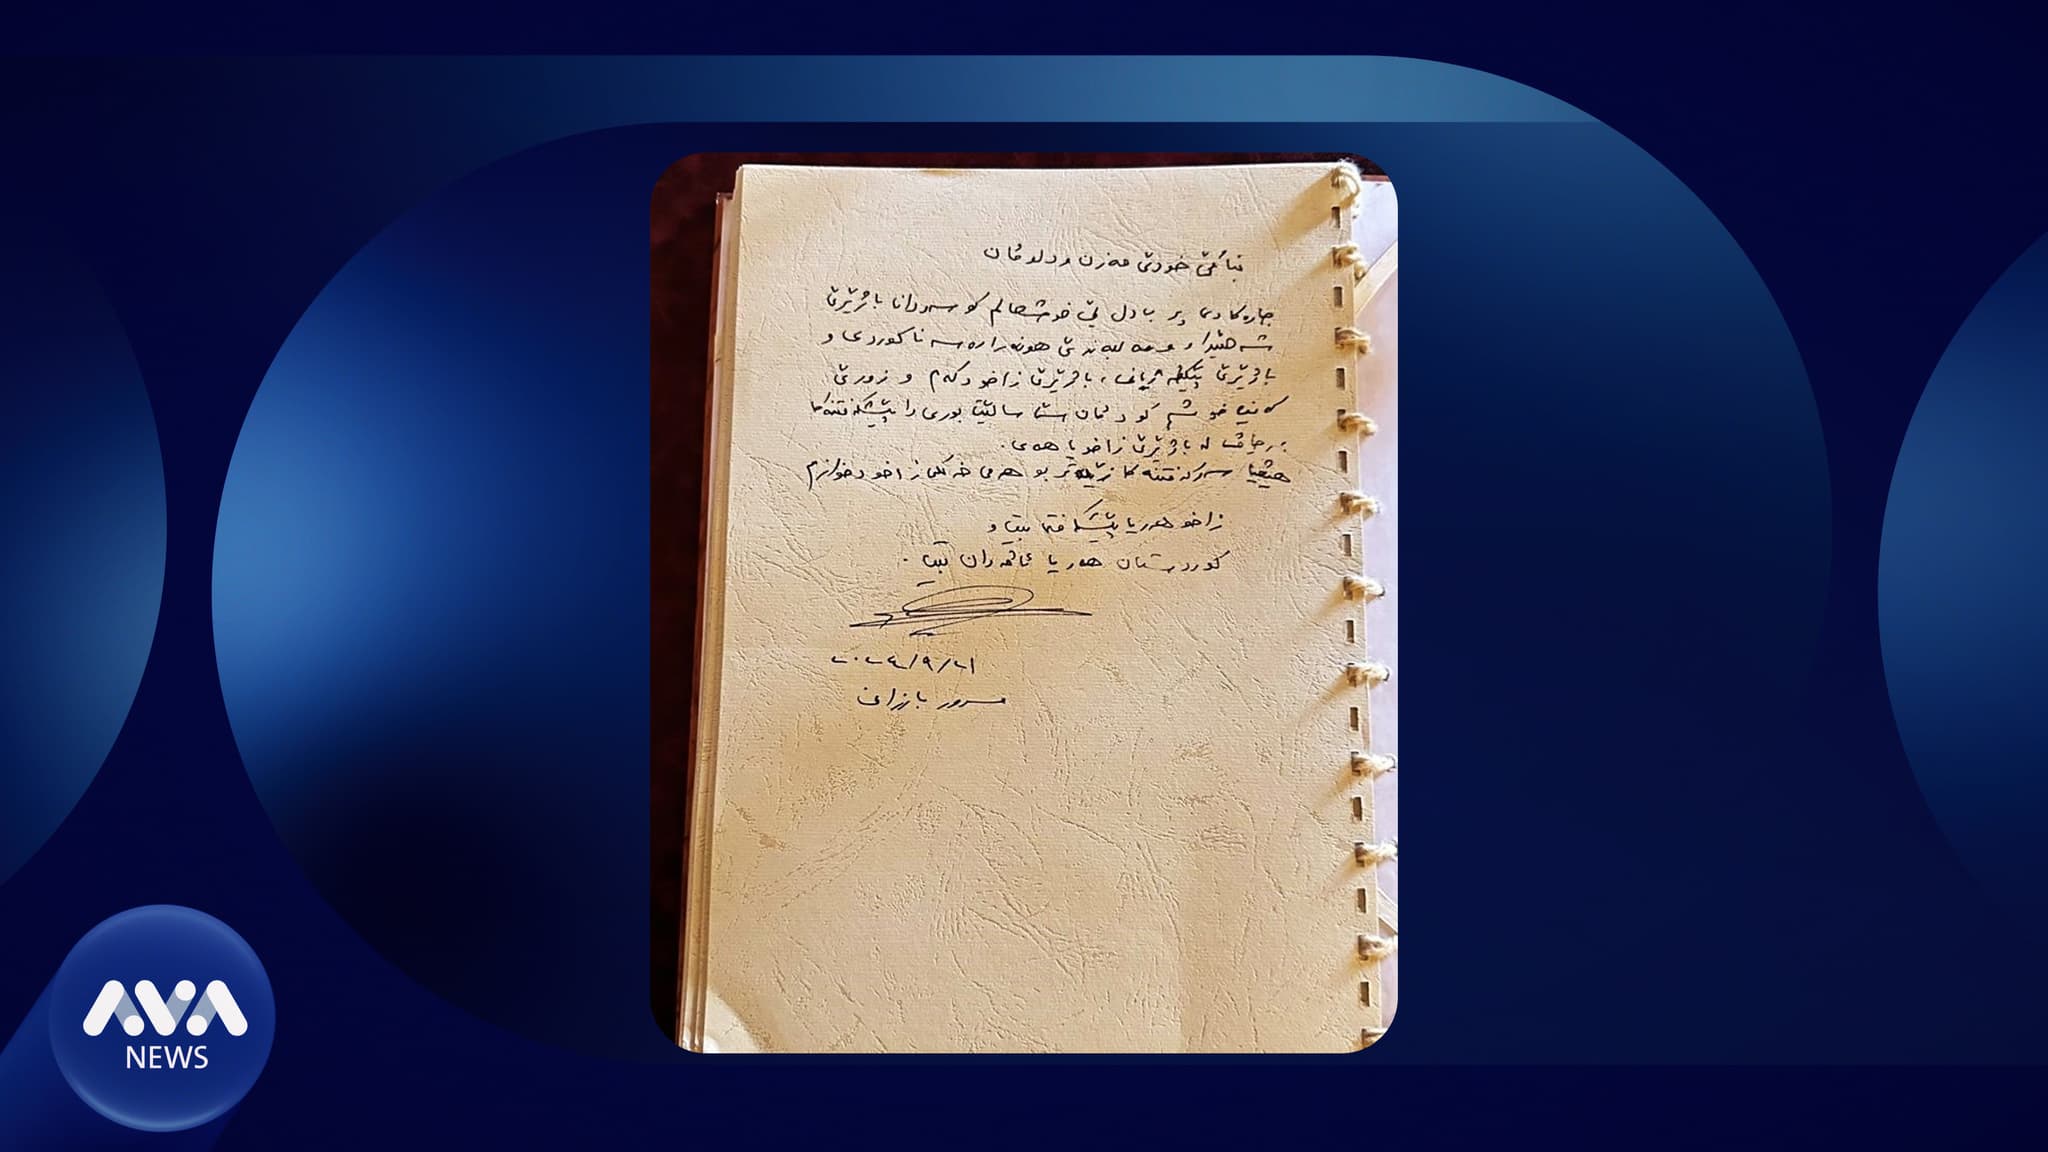 بناڤێ خودێ مەزن و دلوڤان
جارەکا دی پر ب دل خوشحالم کو سەردانا باژێرێ
شەهیدا و مەلبەندێ هونەرا رەسەنا کوردی و
باژێرێ پێکڤەژیانێ، باژێرێ زاخو دکەم و زورێ
کەیف خوشم کو د ڤان سالێت بوری دا پێشکەفتنەکا
بەرچاڤ ل باژێرێ زاخو یا هەی.
هیڤیا سەرکەفتنەکا زێدەتر بو هەمی خەلکێ زاخو دخوازم
زاخو هەر یا پێشکەفتی بیت و
کوردستان هەر یا ئاڤەدان بیت.
٢٠٢٤/٩/٢١
مسرور بارزانی
AVA
NEWS